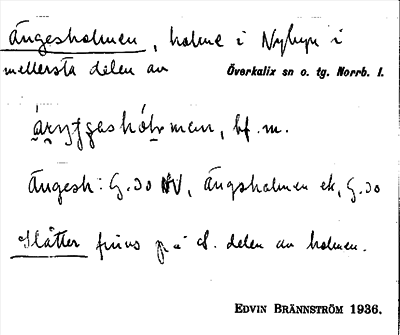 Ängesholmen, holme i Nybyn i
mellersta delen av Överkalix sn o. tg. Norrb. l.
bf. m.
Ängesh: G.30 NV, Ängsholmen ek, G.30
Slåtter finns på S. delen av holmen.
EDVIN BRÄNNSTRÖM 1936.